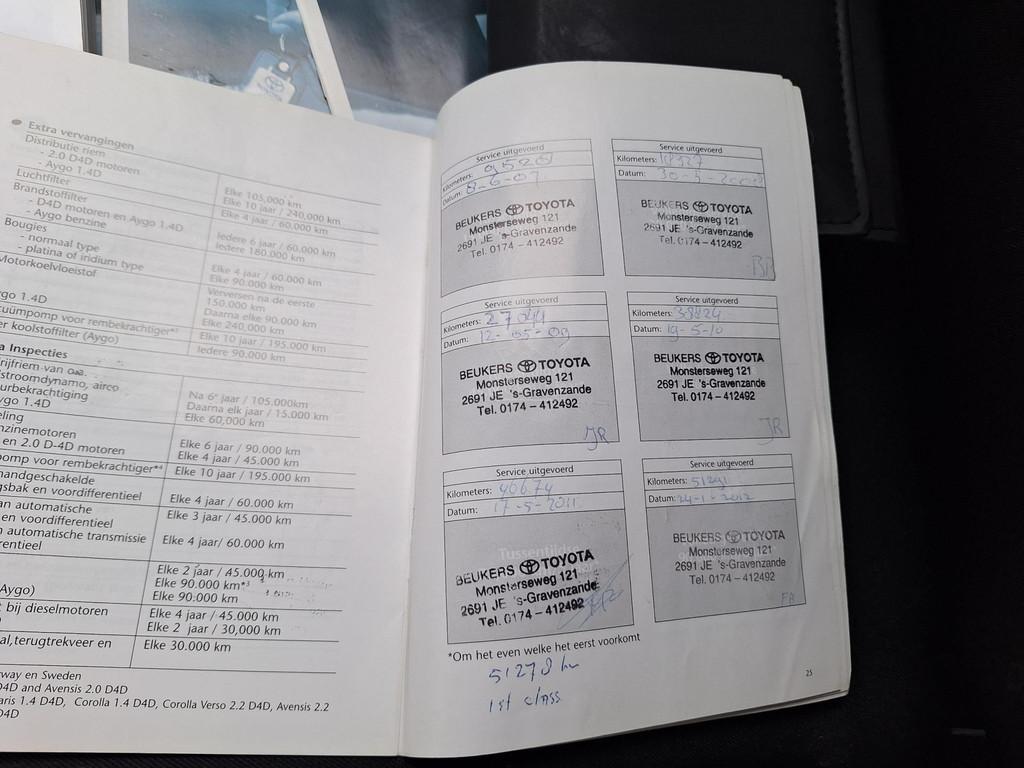 Extra vervangingen
Distributie riem
- 2.0 D4D motoren
- Aygo 1.4D
Luchtfilter
Brandstoffilter
- D4D motoren en Aygo 1.4D
- Aygo benzine
Bougies
- normaal type
- platina of iridium type
Motorkoelvloeistof
Elke 105,000 km
Elke 10 jaar / 240,000 km
Elke 4 jaar / 60.000 km
Iedere 6 jaar / 60,000 km
Iedere 180.000 km
Elke 4 jaar / 60.000 km
Elke 90.000 km
Verversen na de eerste
150.000 km
Daarna elke 90.000 km
Elke 240,000 km
Elke 10 jaar / 195.000 km
Iedere 90.000 km
ygo 1.4D
voor rembekrachtiger*⁴
er koolstofilter (Aygo)
Inspecties
van o.a.
stroomdynamo, airco
urbekrachtiging
ygo 1.4D
Na 6ᵉ jaar / 105.000km
Daarna elk jaar / 15.000 km
Elke 60,000 km
eling
nzinemotoren
en 2.0 D-4D motoren
Elke 6 jaar / 90.000 km
Elke 4 jaar / 45.000 km
pomp voor rembekrachtiger*⁴
Elke 10 jaar / 195.000 km
handgeschakelde
gsbak en voordifferentieel
Elke 4 jaar / 60.000 km
an automatische
en voordifferentieel
Elke 3 jaar / 45.000 km
n automatische transmissie
erentieel
Elke 4 jaar/ 60.000 km
Elke 2 jaar / 45.000 km
Elke 90.000 km*³
Elke 90.000 km
Aygo)
t bij dieselmotoren
Elke 4 jaar / 45.000 km
Elke 2 jaar / 30,000 km
al,terugtrekveer en
Elke 30.000 km
rway en Sweden
D4D and Avensis 2.0 D4D
aris 1.4 D4D, Corolla 1.4 D4D, Corolla Verso 2.2 D4D, Avensis 2.2
D4D
Service uitgevoerd
Kilometers: 9520
Datum: 8-6-07
BEUKERS TOYOTA
Monsterseweg 121
2691 JE 's-Gravenzande
Tel. 0174 – 412492
Service uitgevoerd
Kilometers:
Datum: 30-5-2008
BEUKERS TOYOTA
Monsterseweg 121
2691 JE 's-Gravenzande
Tel. 0174 – 412492
Service uitgevoerd
Kilometers: 27044
Datum: 12-05-09
BEUKERS TOYOTA
Monsterseweg 121
2691 JE 's-Gravenzande
Tel. 0174 – 412492
JR
Service uitgevoerd
Kilometers: 38824
Datum: 19-5-10
BEUKERS TOYOTA
Monsterseweg 121
2691 JE 's-Gravenzande
Tel. 0174 – 412492
JR
Service uitgevoerd
Kilometers: 46674
Datum: 17-5-2011
BEUKERS TOYOTA
Monsterseweg 121
2691 JE 's-Gravenzande
Tel. 0174 – 412492
Service uitgevoerd
Kilometers: 51291
Datum: 24-1-2012
BEUKERS TOYOTA
Monsterseweg 121
2691 JE 's-Gravenzande
Tel. 0174 – 412492
FA
*Om het even welke het eerst voorkomt
51278 km
1st class
25